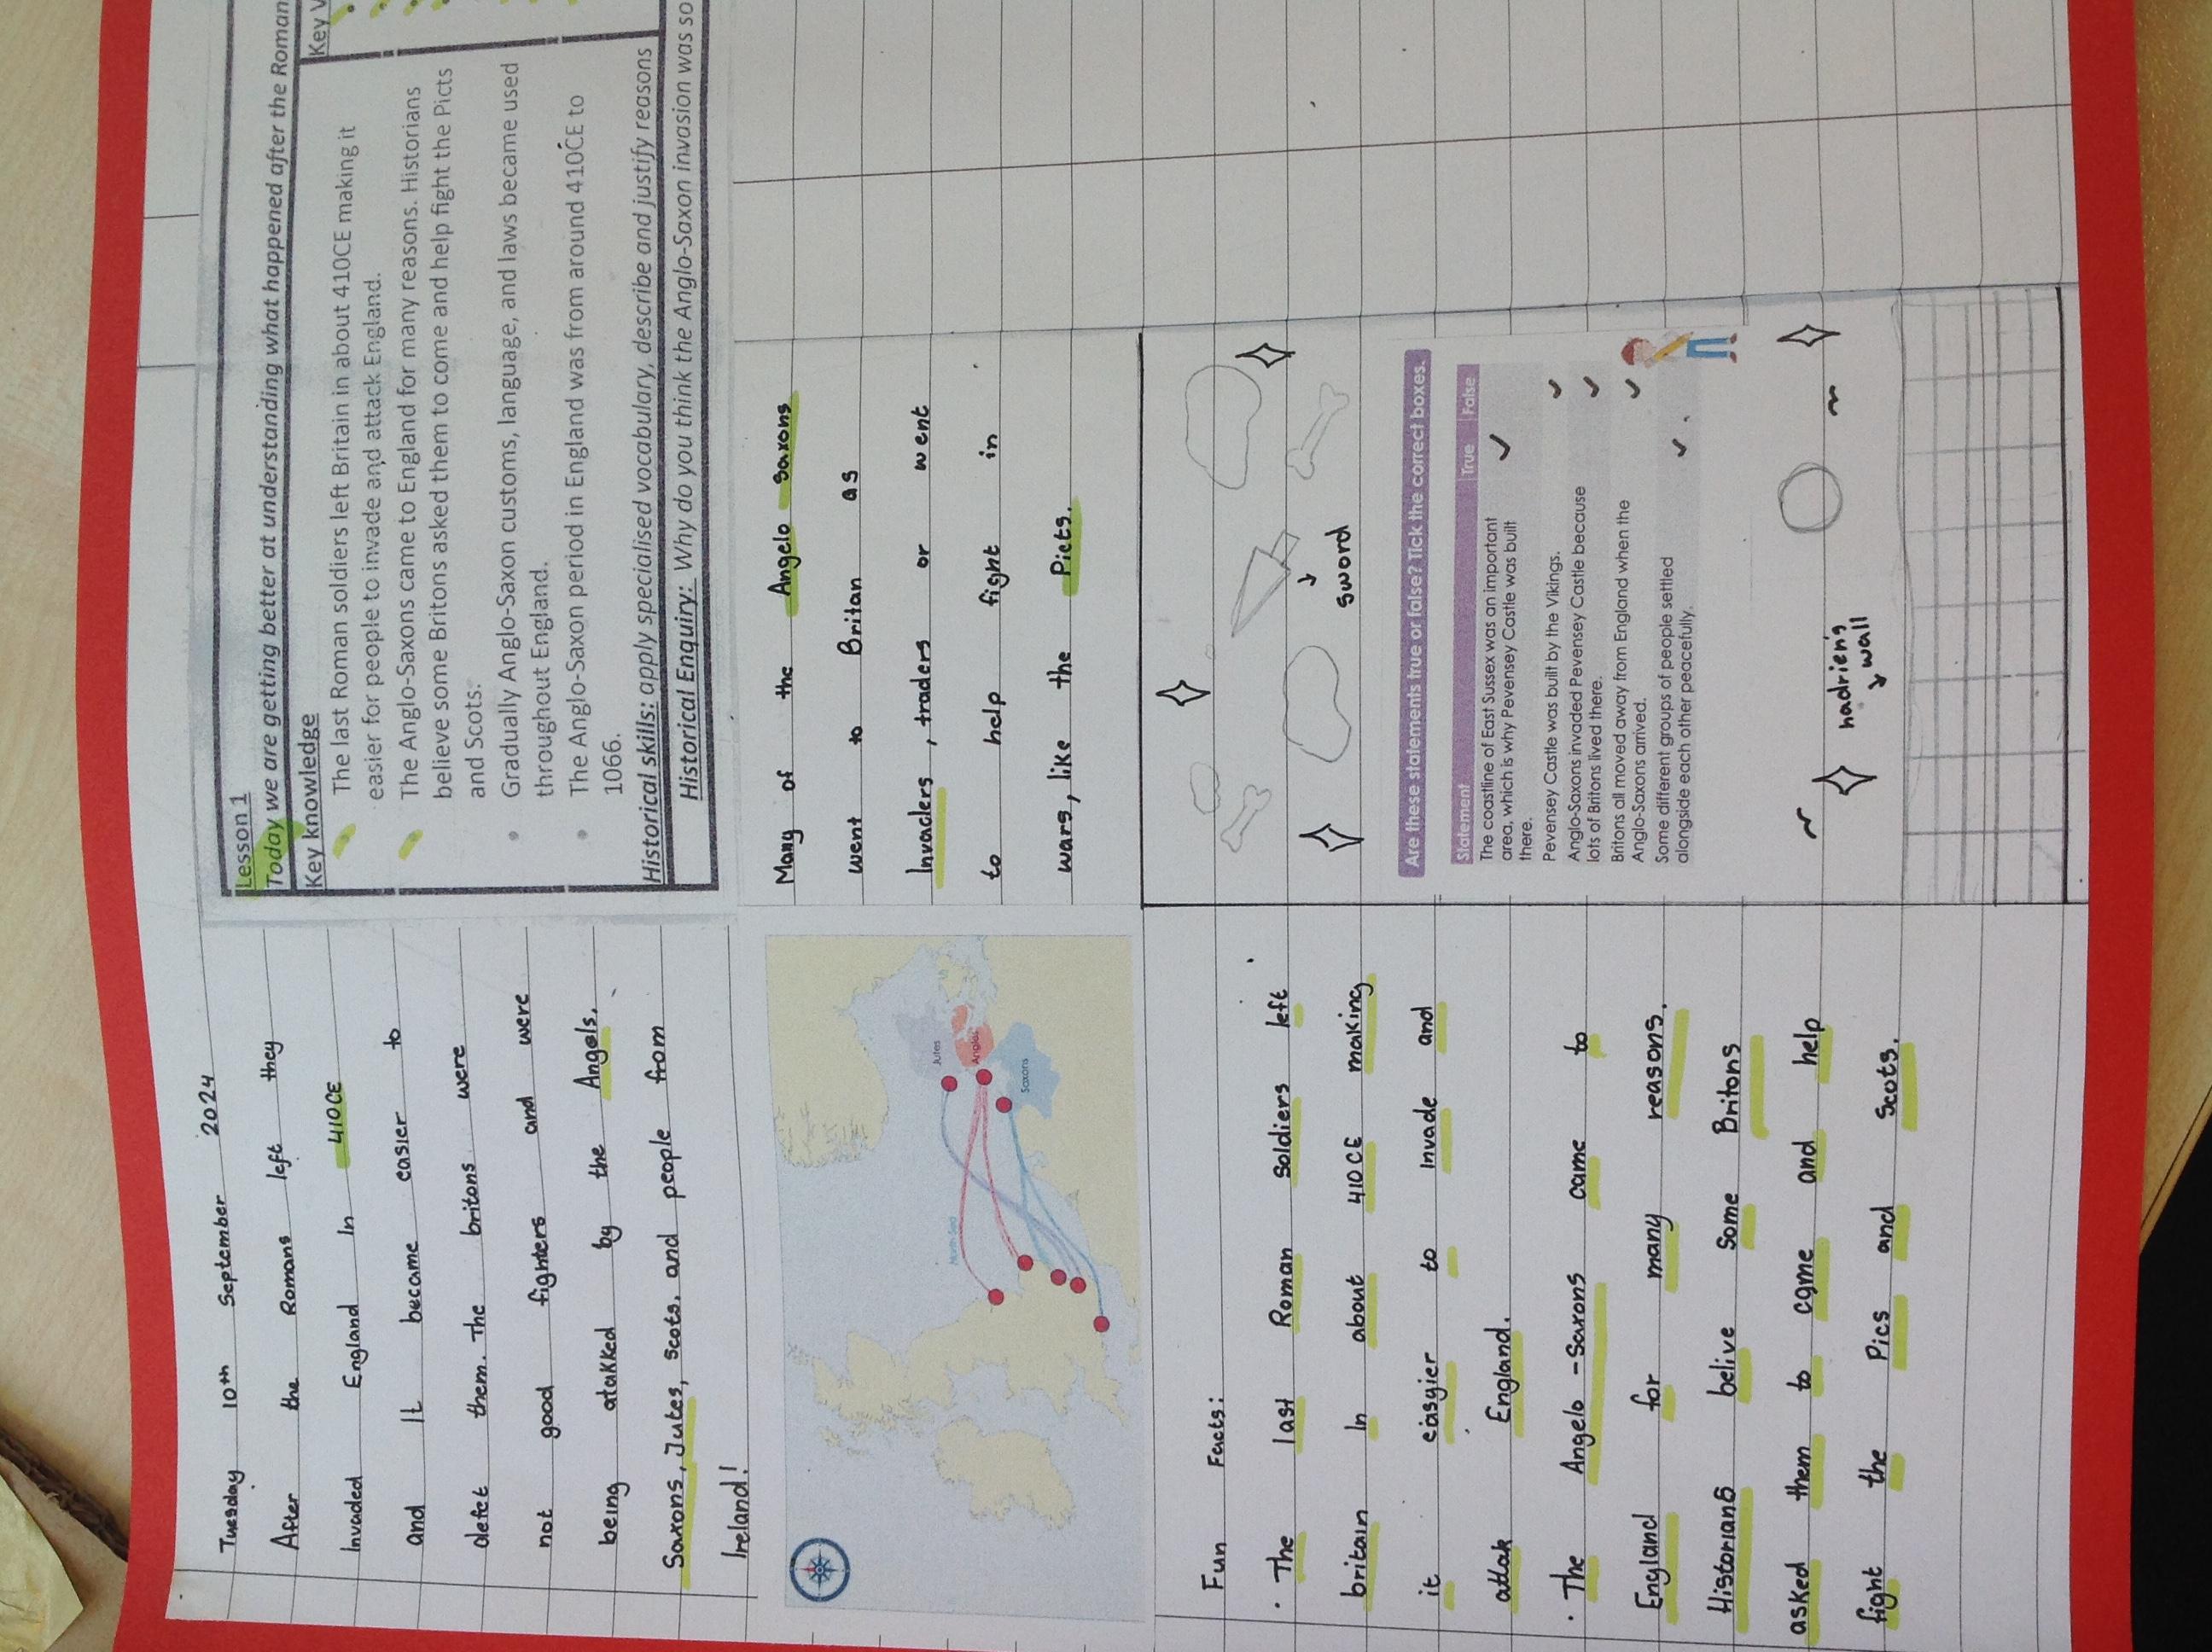 Tuesday 10th September 2024
After the Romans left they
Invaded England In 410CE
and It became easier to
defet them. The britons were
not good fighters and were
being atakked by the Angels,
Saxons, Jutes, Scots, and people from
Ireland!
Lesson 1
Today we are getting better at understanding what happened after the Roman
Key knowledge
Key
The last Roman soldiers left Britain in about 410CE making it
easier for people to invade and attack England.
The Anglo-Saxons came to England for many reasons. Historians
believe some Britons asked them to come and help fight the Picts
and Scots.
Gradually Anglo-Saxon customs, language, and laws became used
throughout England.
The Anglo-Saxon period in England was from around 410CE to
1066.
Historical skills: apply specialised vocabulary, describe and justify reasons
Historical Enquiry: Why do you think the Anglo-Saxon invasion was so
North Sea
Jutes
Angles
Saxons
Many of the Angelo Saxons
went to Britan as
Invaders, traders or went
to help fight in
wars, like the Picts.
Fun Facts:
· The last Roman Soldiers left
britain In about 410CE making
it easyier to Invade and
attak England.
· The Angelo-Saxons came to
England for many reasons.
Historians belive Some Britons
asked them to come and help
fight the Pics and Scots.
sword
Are these statements true or false? Tick the correct boxes.
Statement True False
The coastline of East Sussex was an important
area, which is why Pevensey Castle was built
there.
Pevensey Castle was built by the Vikings.
Anglo-Saxons invaded Pevensey Castle because
lots of Britons lived there.
Britons all moved away from England when the
Anglo-Saxons arrived.
Some different groups of people settled
alongside each other peacefully.
hadrien's
wall